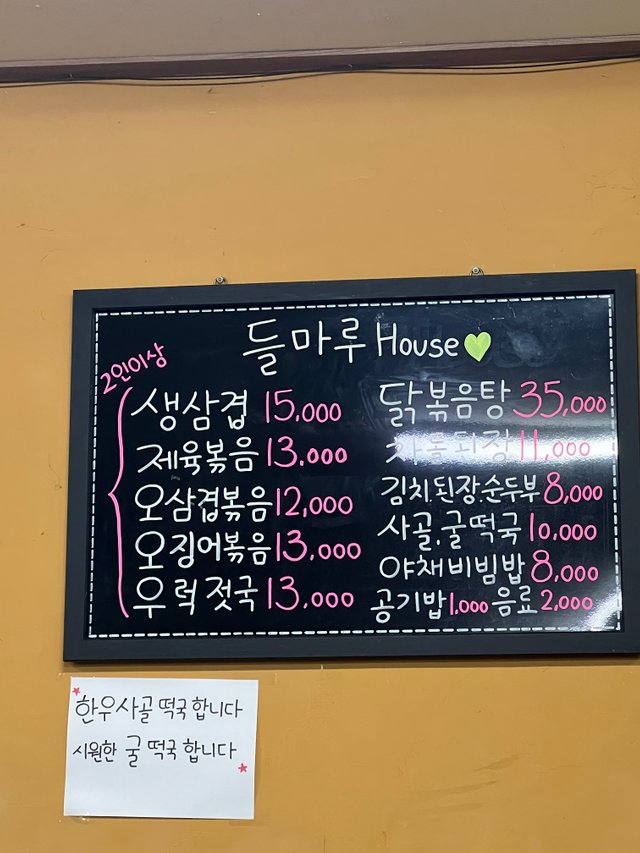 들마루 House
2인이상
생삼겹 15,000
제육볶음 13.000
오삼겹볶음 12,000
오징어볶음 13,000
우럭젓국 13,000
닭볶음탕 35,000
차돌된장 11,000
김치.된장.순두부 8,000
사골.굴떡국 10,000
야채비빔밥 8,000
공기밥 1,000 음료 2,000
한우사골 떡국 합니다
시원한 굴 떡국 합니다